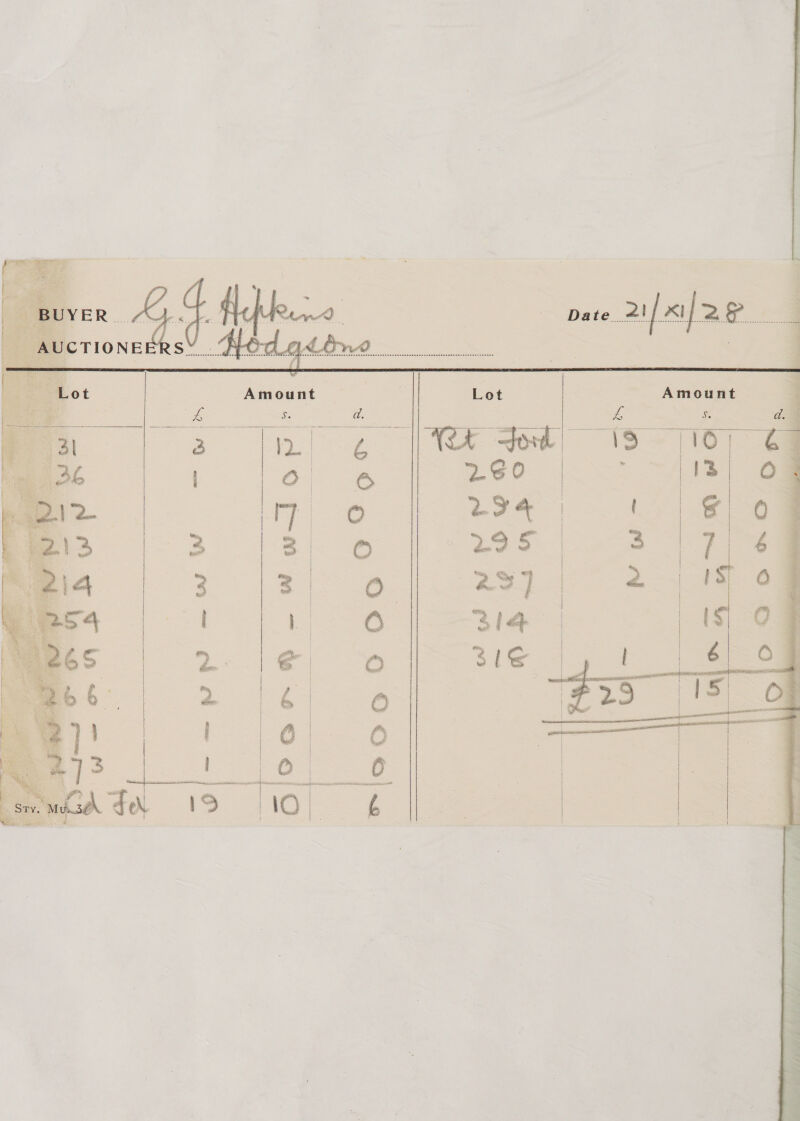 BUYER G. J. Hipkins
Date 21/XI/28
AUCTIONEERS Hodgsons
Lot Amount
£ s. d.
31 3 12 6
36 1 0 0
212 17 0
213 3 3 0
214 3 3 0
254 1 1 0
265 2 8 0
266 2 6 0
271 1 0 0
273 1 0 0
Sty. Mus. 3 Cd For 19 10 6
Lot Amount
£ s. d.
Bt Ford 19 10 6
280 13 0
294 1 8 0
295 3 7 6
297 2 15 0
314 15 0
318 1 6 0
£29 15 0